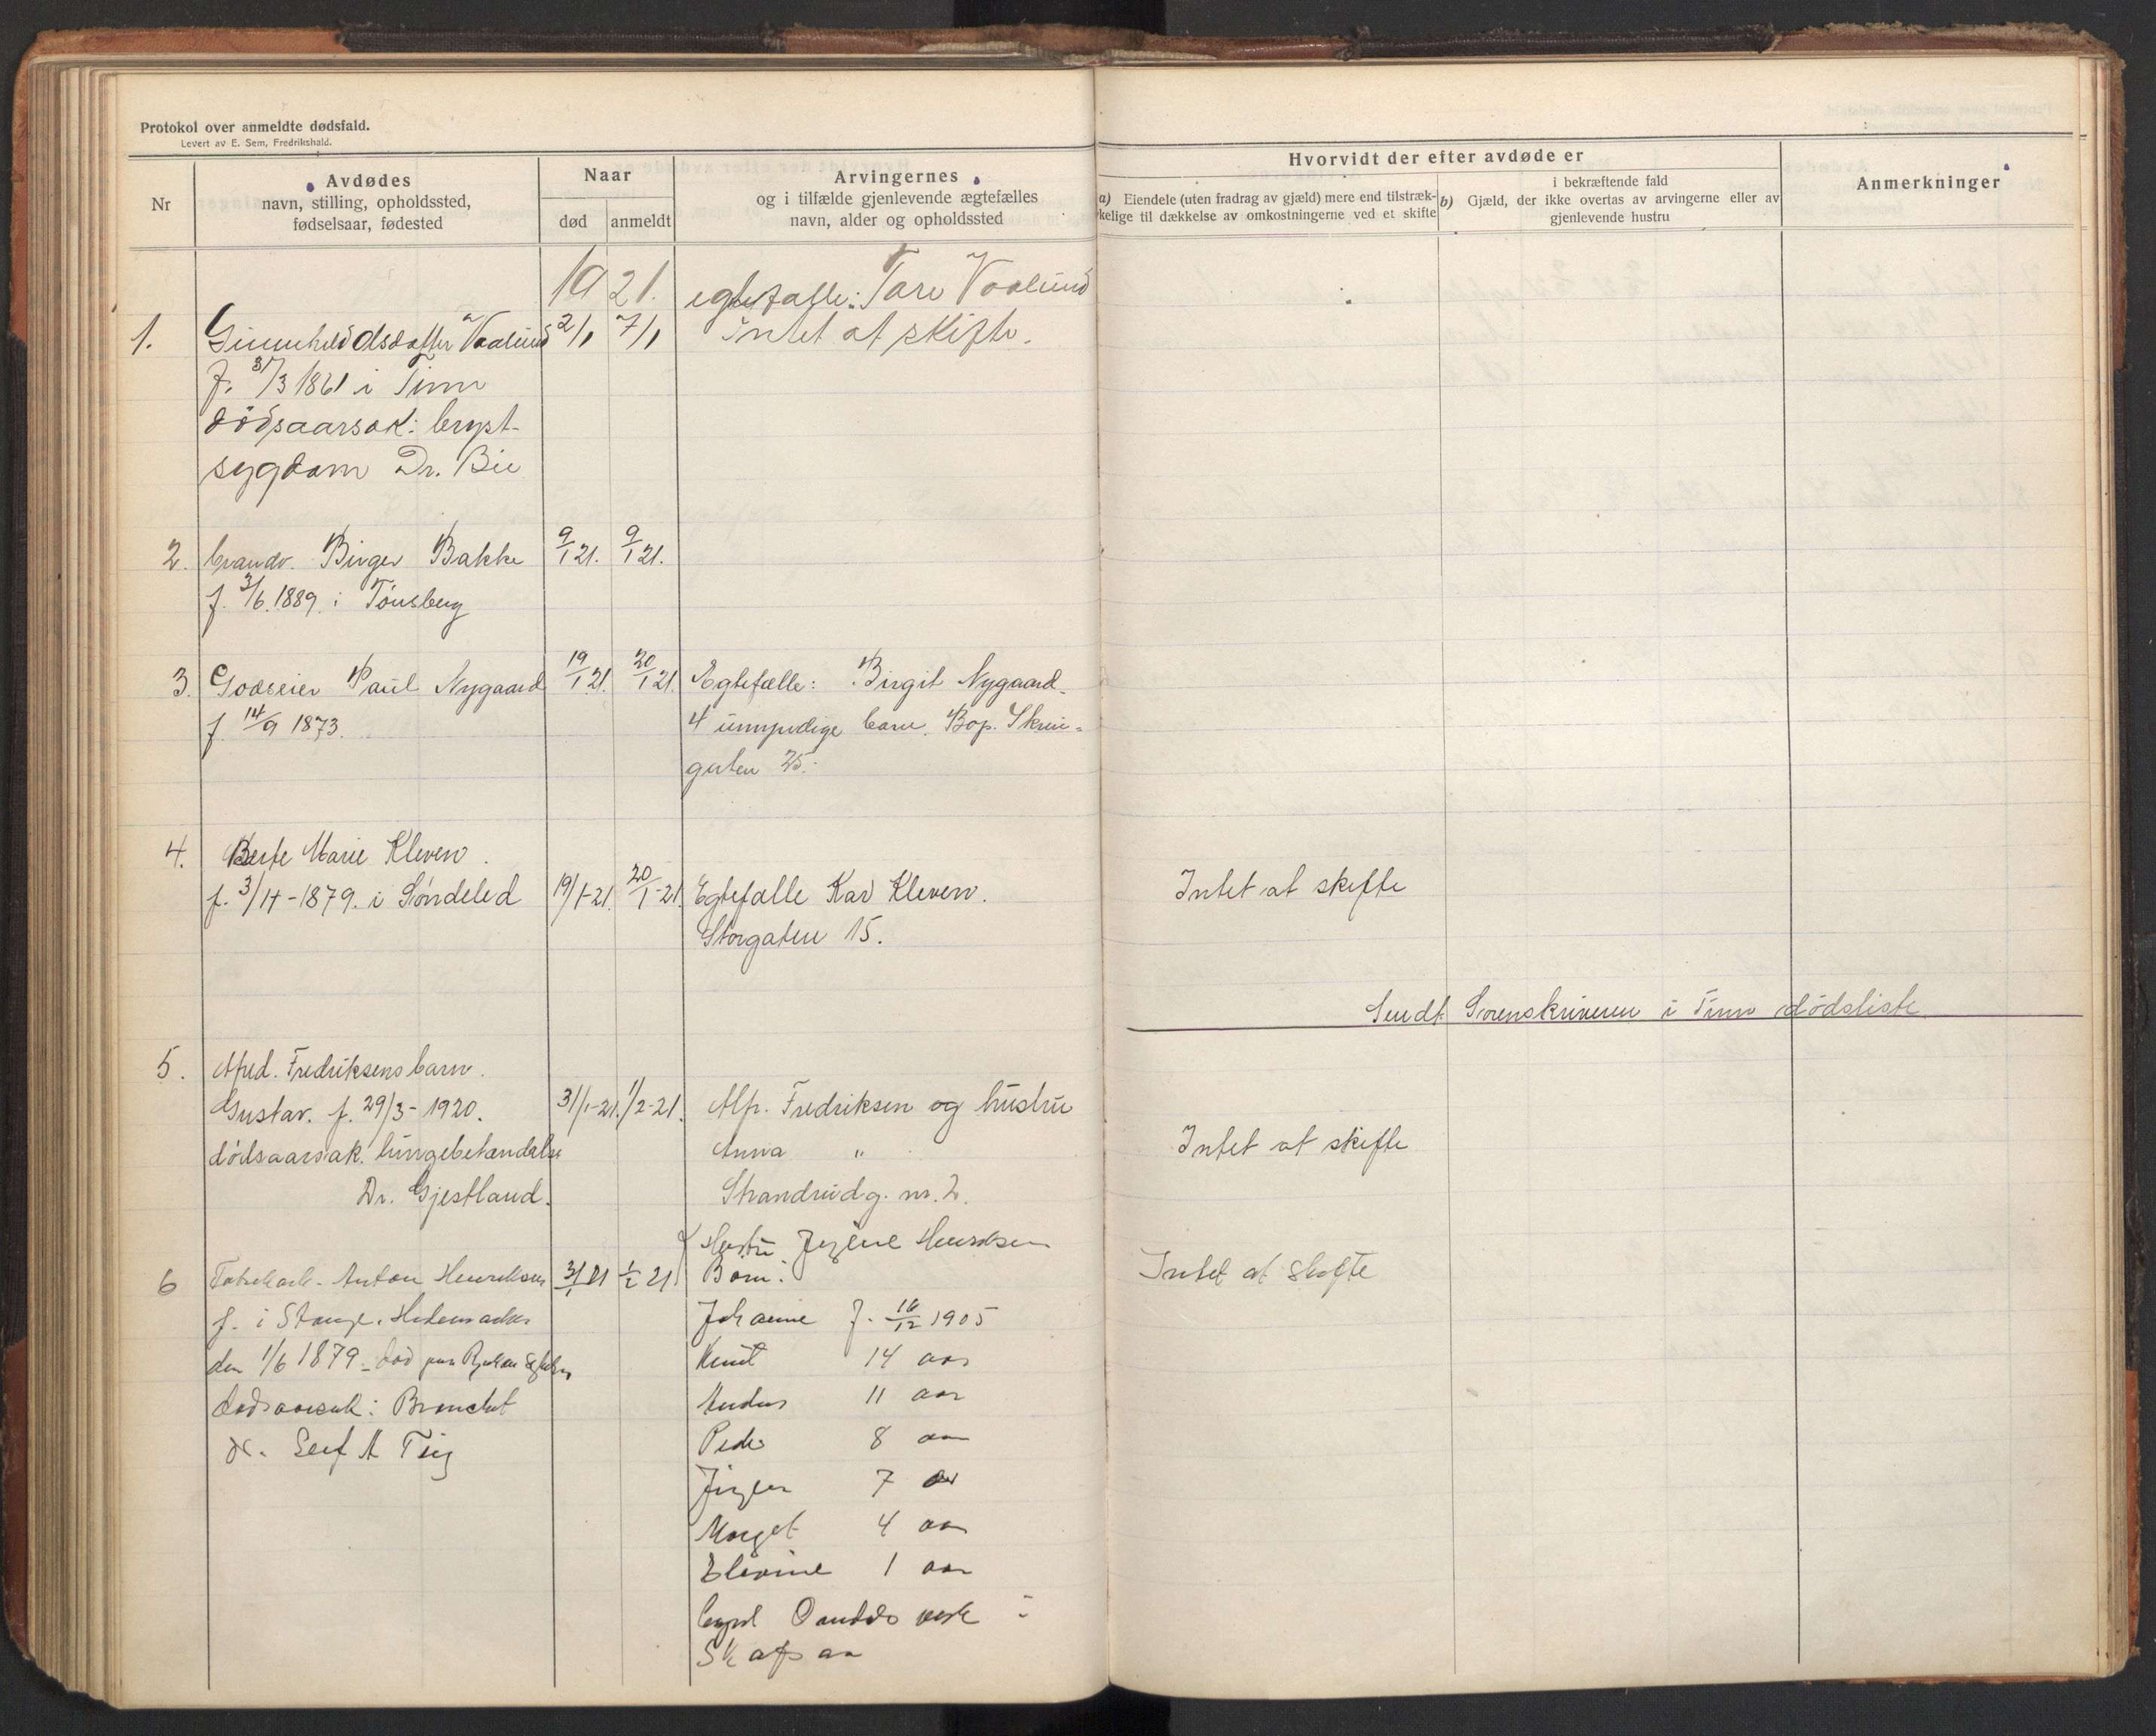 Protokol over anmeldte dødsfald.
Levert av E. Sem, Fredrikshald.
Nr
Avdødes
navn, stilling, opholdssted,
fødselsaar, fødested
Naar
død
anmeldt
Arvingernes
og i tilfælde gjenlevende ægtefælles
navn, alder og opholdssted
Hvorvidt der efter avdøde er
a) Eiendele (uten fradrag av gjæld) mere end tilstræk-
kelige til dækkelse av omkostningerne ved et skifte
b) i bekræftende fald
Gjæld, der ikke overtas av arvingerne eller av
gjenlevende hustru
Anmerkninger
1921. egtefalle: Tare Vaalund
1. Gunnhild Olsdatter Vaalund 2/1 7/1 Intet at skifte.
f. 31/3 1861 i Tinn
dödsaarsak: bryst-
sygdom Dr. Bie
2. brandv. Birger Bakke 9/1 21. 9/1 21.
f. 3/6. 1889. i Tönsberg
3. Godseier Paul Nygaard 19/1 21. 20/1 21. Egtefælle: Birgit Nygaard.
f 14/9 1873. 4 umyndige barn. Bop.
gaten 25.
4. Berte Marie Kleven.
f. 3/4-1879. i Söndeled 19/1-21. 20/1-21. Egtefalle Kar Kleven. Intet at skifte
Storgaten 15.
Sendt Sorenskriveren i Tinn dödsliste
5. Alfred. Fredriksens barn.
Gustav. f. 29/3-1920. 31/1-21. 1/2-21. Alfr. Fredriksen og hustru
dödsaarsak. lungebetændelse Anna " Intet at skifte
Dr. Gjestland. Strandrudg. nr. 2.
Hustru Henriksen
6 Anton Henriksen 31/1 21 1/2 21 Barn: Intet at skifte
f. i Stange, Hedemarken Johanne f. 16/12 1905
den 1/6 1879 - död paa Rjukan Knut 14 aar
dødsaarsak: Anders 11 aar
Dr. Leif A Peder 8 aar
Jörgen 7 aar
Margit 4 aar
1 aar
i
Skafsaa